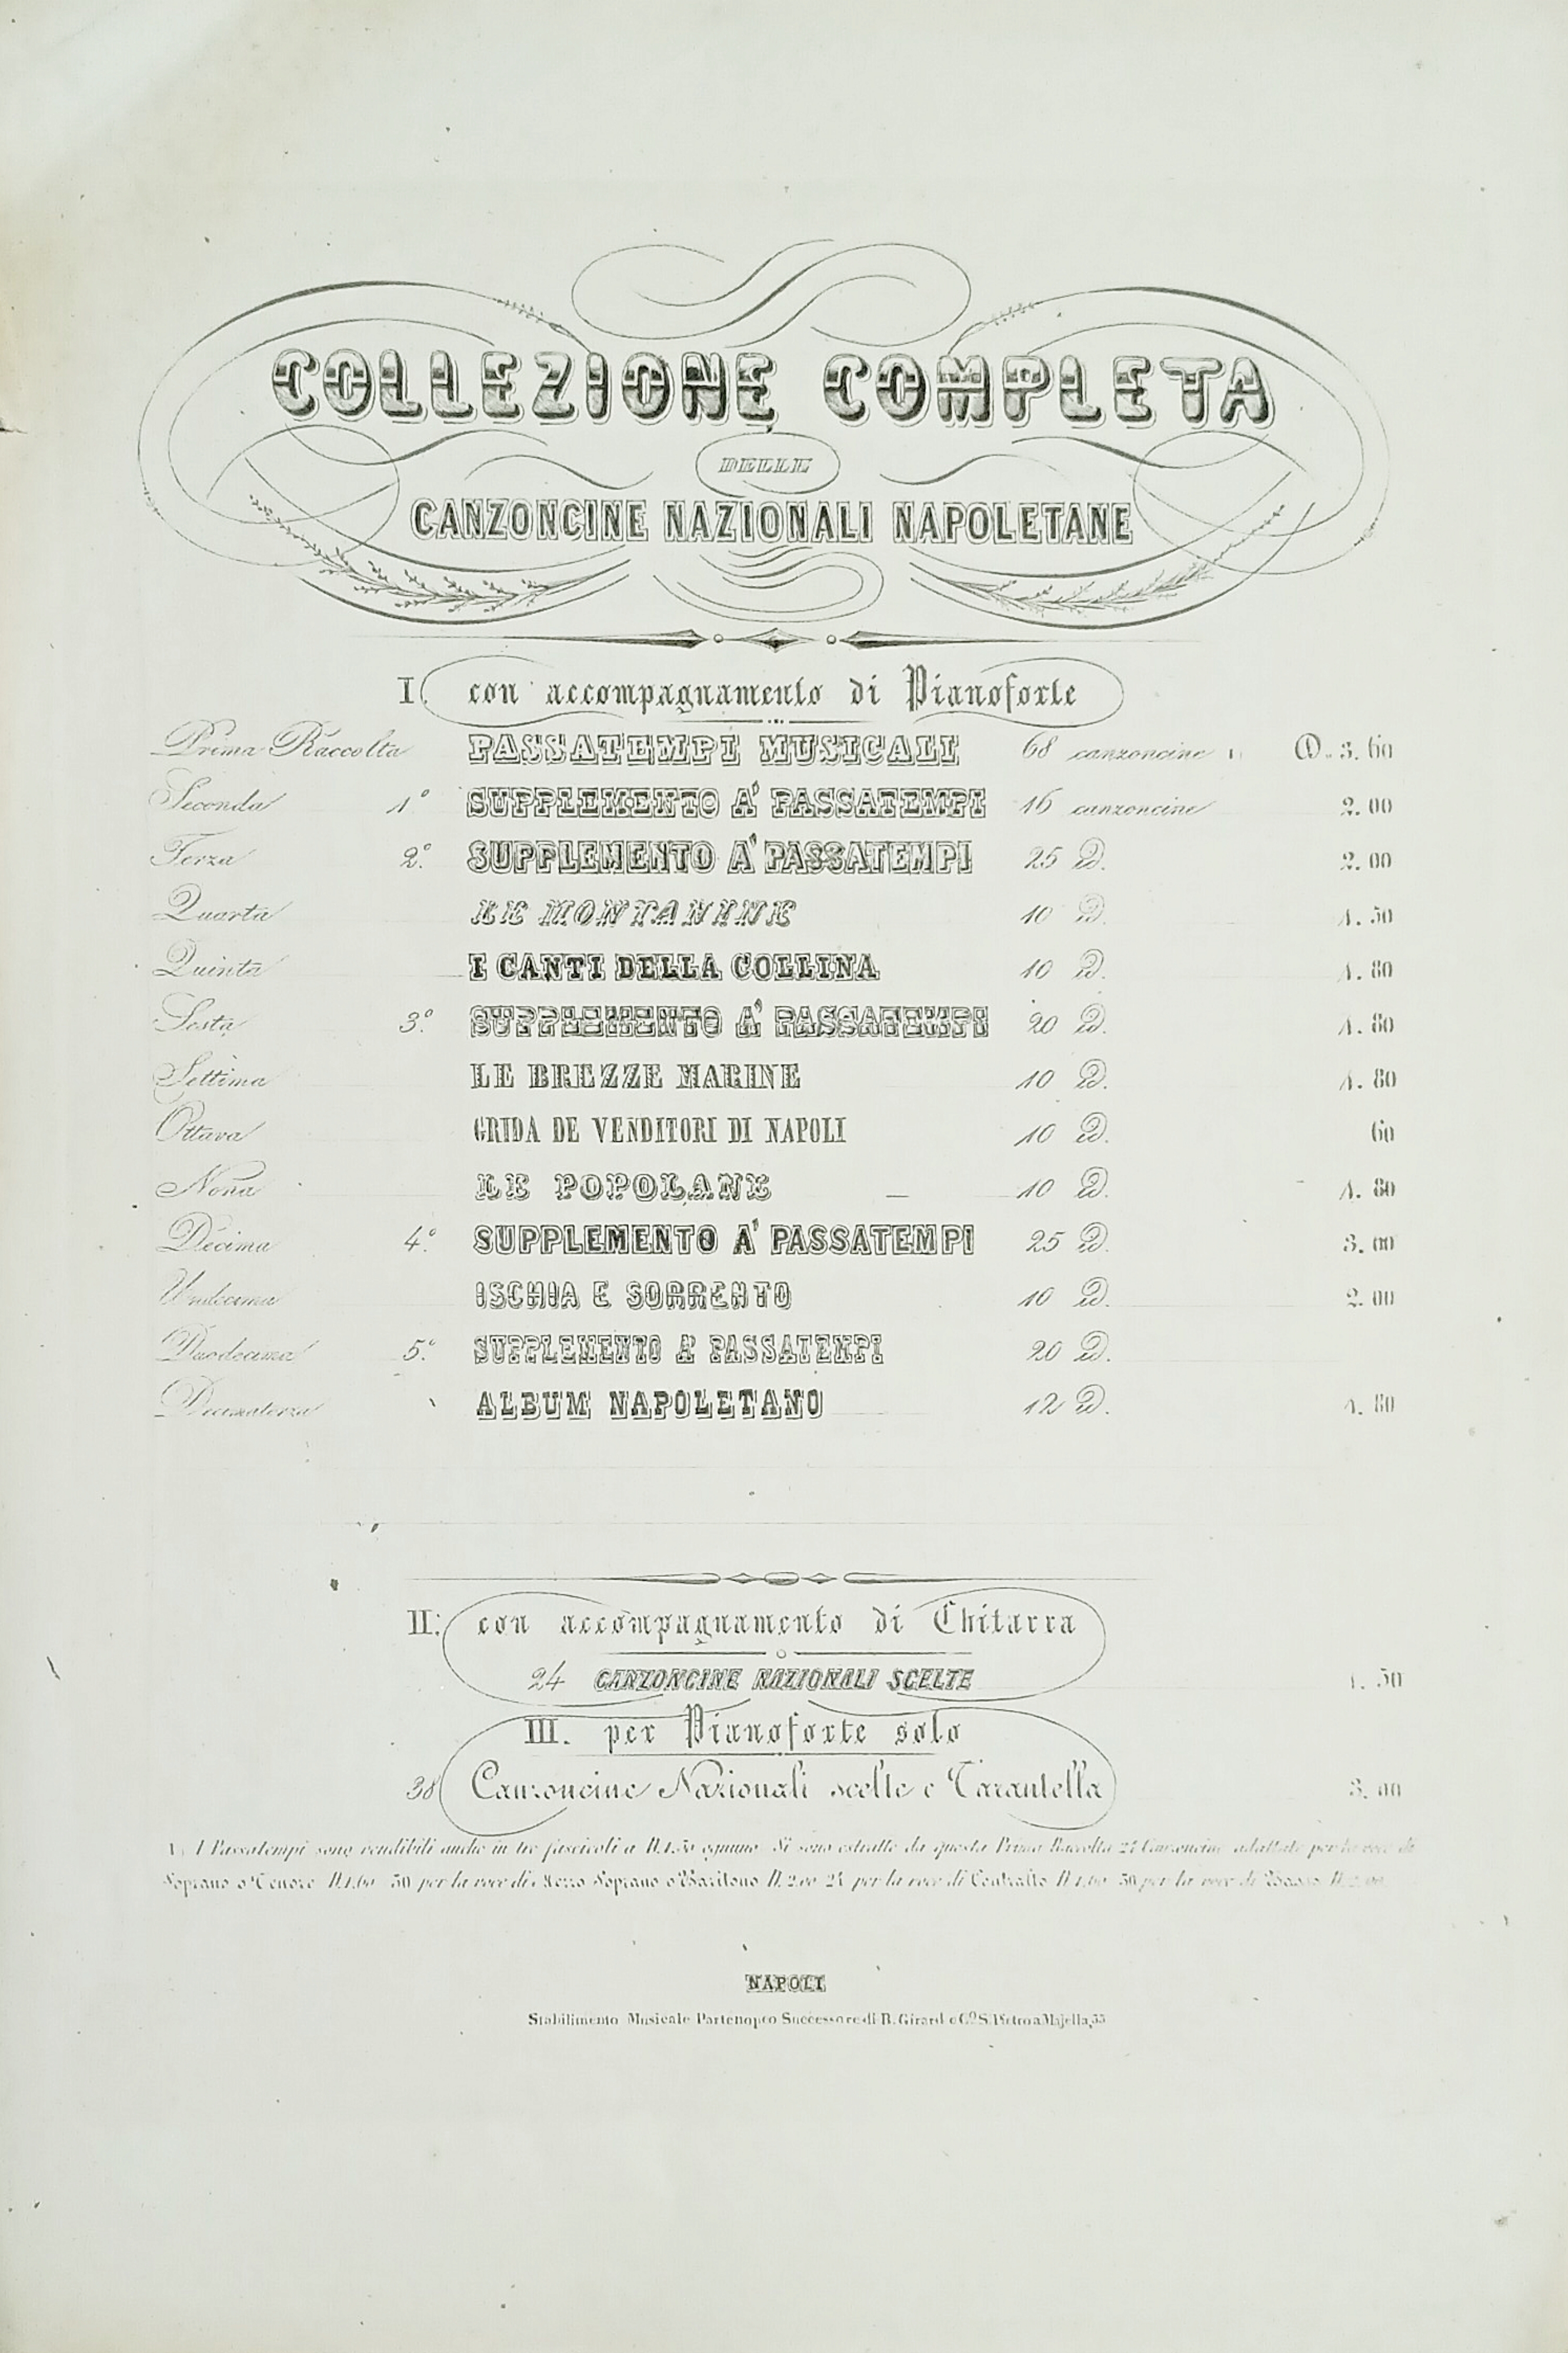 COLLEZIONE COMPLETA
DELLE
CANZONCINE NAZIONALI NAPOLETANE
I. con accompagnamento di Pianoforte
Prima Raccolta PASSATEMPI MUSICALI 68 canzoncine 1) D. 3. 60
Seconda 1º SUPPLEMENTO A' PASSATEMPI 16 canzoncine 2. 00
Terza 2º SUPPLEMENTO A' PASSATEMPI 25 D. 2. 00
Quarta LE MONTANINE 10 D. 1. 50
Quinta I CANTI DELLA COLLINA 10 D. 1. 80
Sesta 3º SUPPLEMENTO A' PASSATEMPI 20 D. 1. 80
Settima LE BREZZE MARINE 10 D. 1. 80
Ottava GRIDA DE VENDITORI DI NAPOLI 10 D. 60
Nona LE POPOLANE 10 D. 1. 80
Decima 4º SUPPLEMENTO A' PASSATEMPI 25 D. 3. 00
Undecima ISCHIA E SORRENTO 10 D. 2. 00
Duodecima 5º SUPPLEMENTO A' PASSATEMPI 20 D.
Decimaterza ALBUM NAPOLETANO 12 D. 1. 80
II. con accompagnamento di Chitarra
24 CANZONCINE NAZIONALI SCELTE 1. 50
III. per Pianoforte solo
38 Canzoncine Nazionali scelte e Tarantella 3. 00
1) I Passatempi sono vendibili anche in tre fascicoli a D. 1.50 ognuno. Si sono estratte da questa Prima Raccolta 24 Canzoncine adattate per la voce di
Soprano o Tenore D. 1.60 30 per la voce di Mezzo Soprano o Baritono D. 2.00 24 per la voce di Contralto D. 1.60 30 per la voce di Basso D. 2.00
NAPOLI
Stabilimento Musicale Partenopeo Successore di B. Girard e Cº S. Pietro a Majella, 33